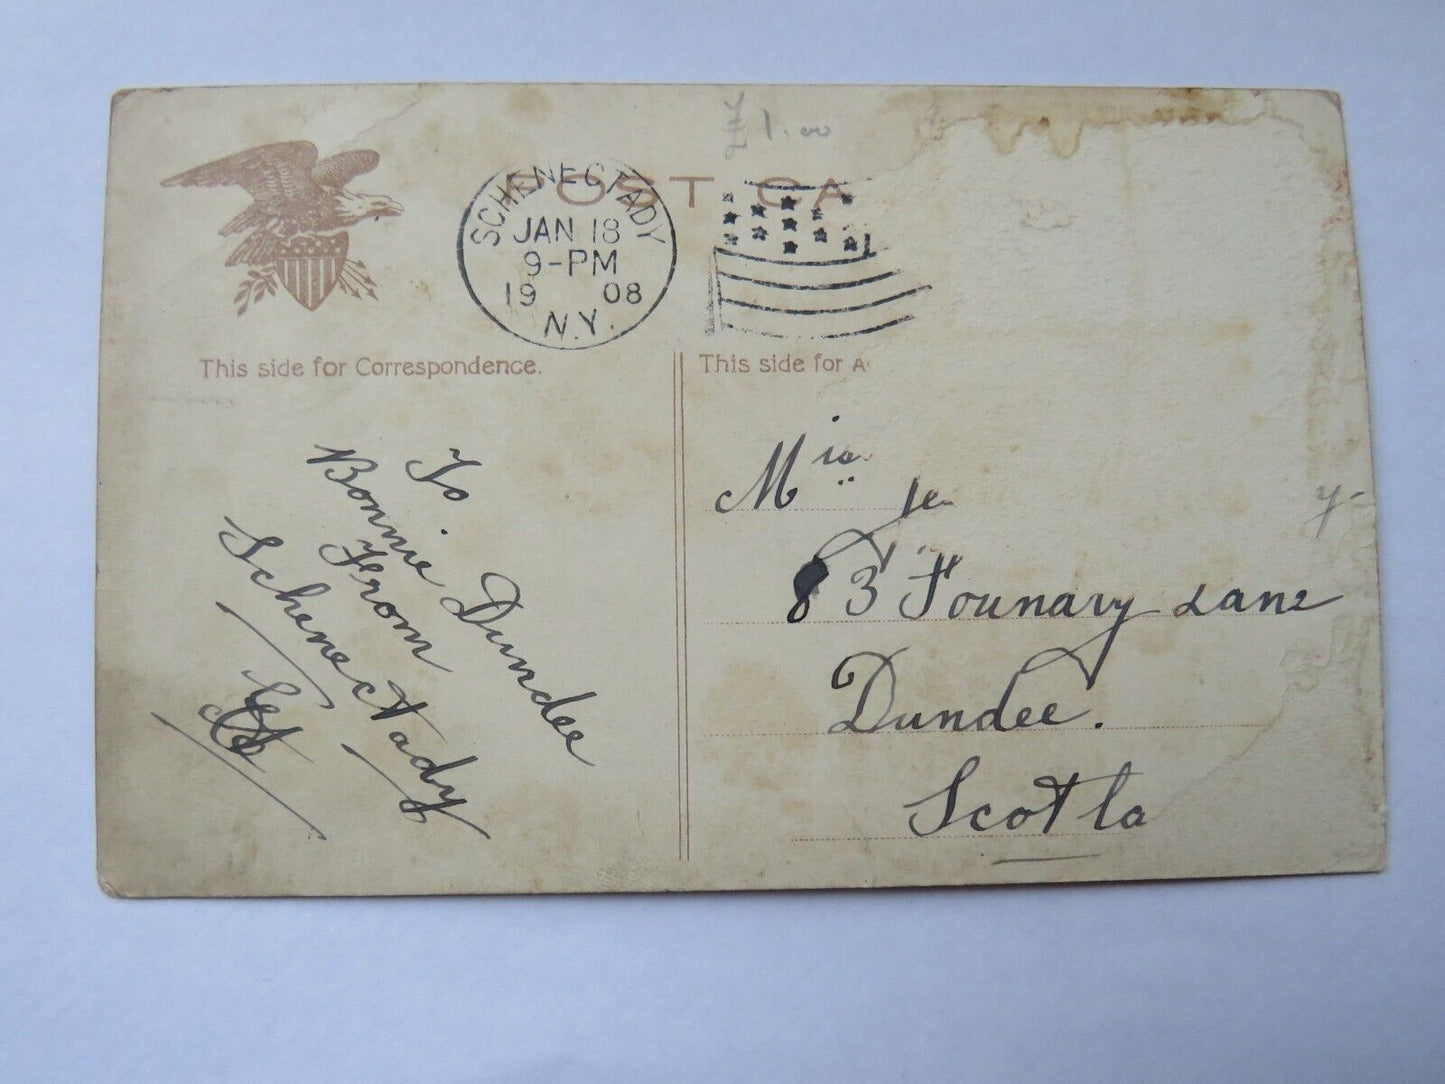 £1.00
POST CA
SCHENECTADY
JAN 18
9-PM
19 08
N.Y.
This side for Correspondence.
This side for A
To.
Bonnie Dundee
From
Schenectady
Miss
83 Founary Lane
Dundee.
Scotla